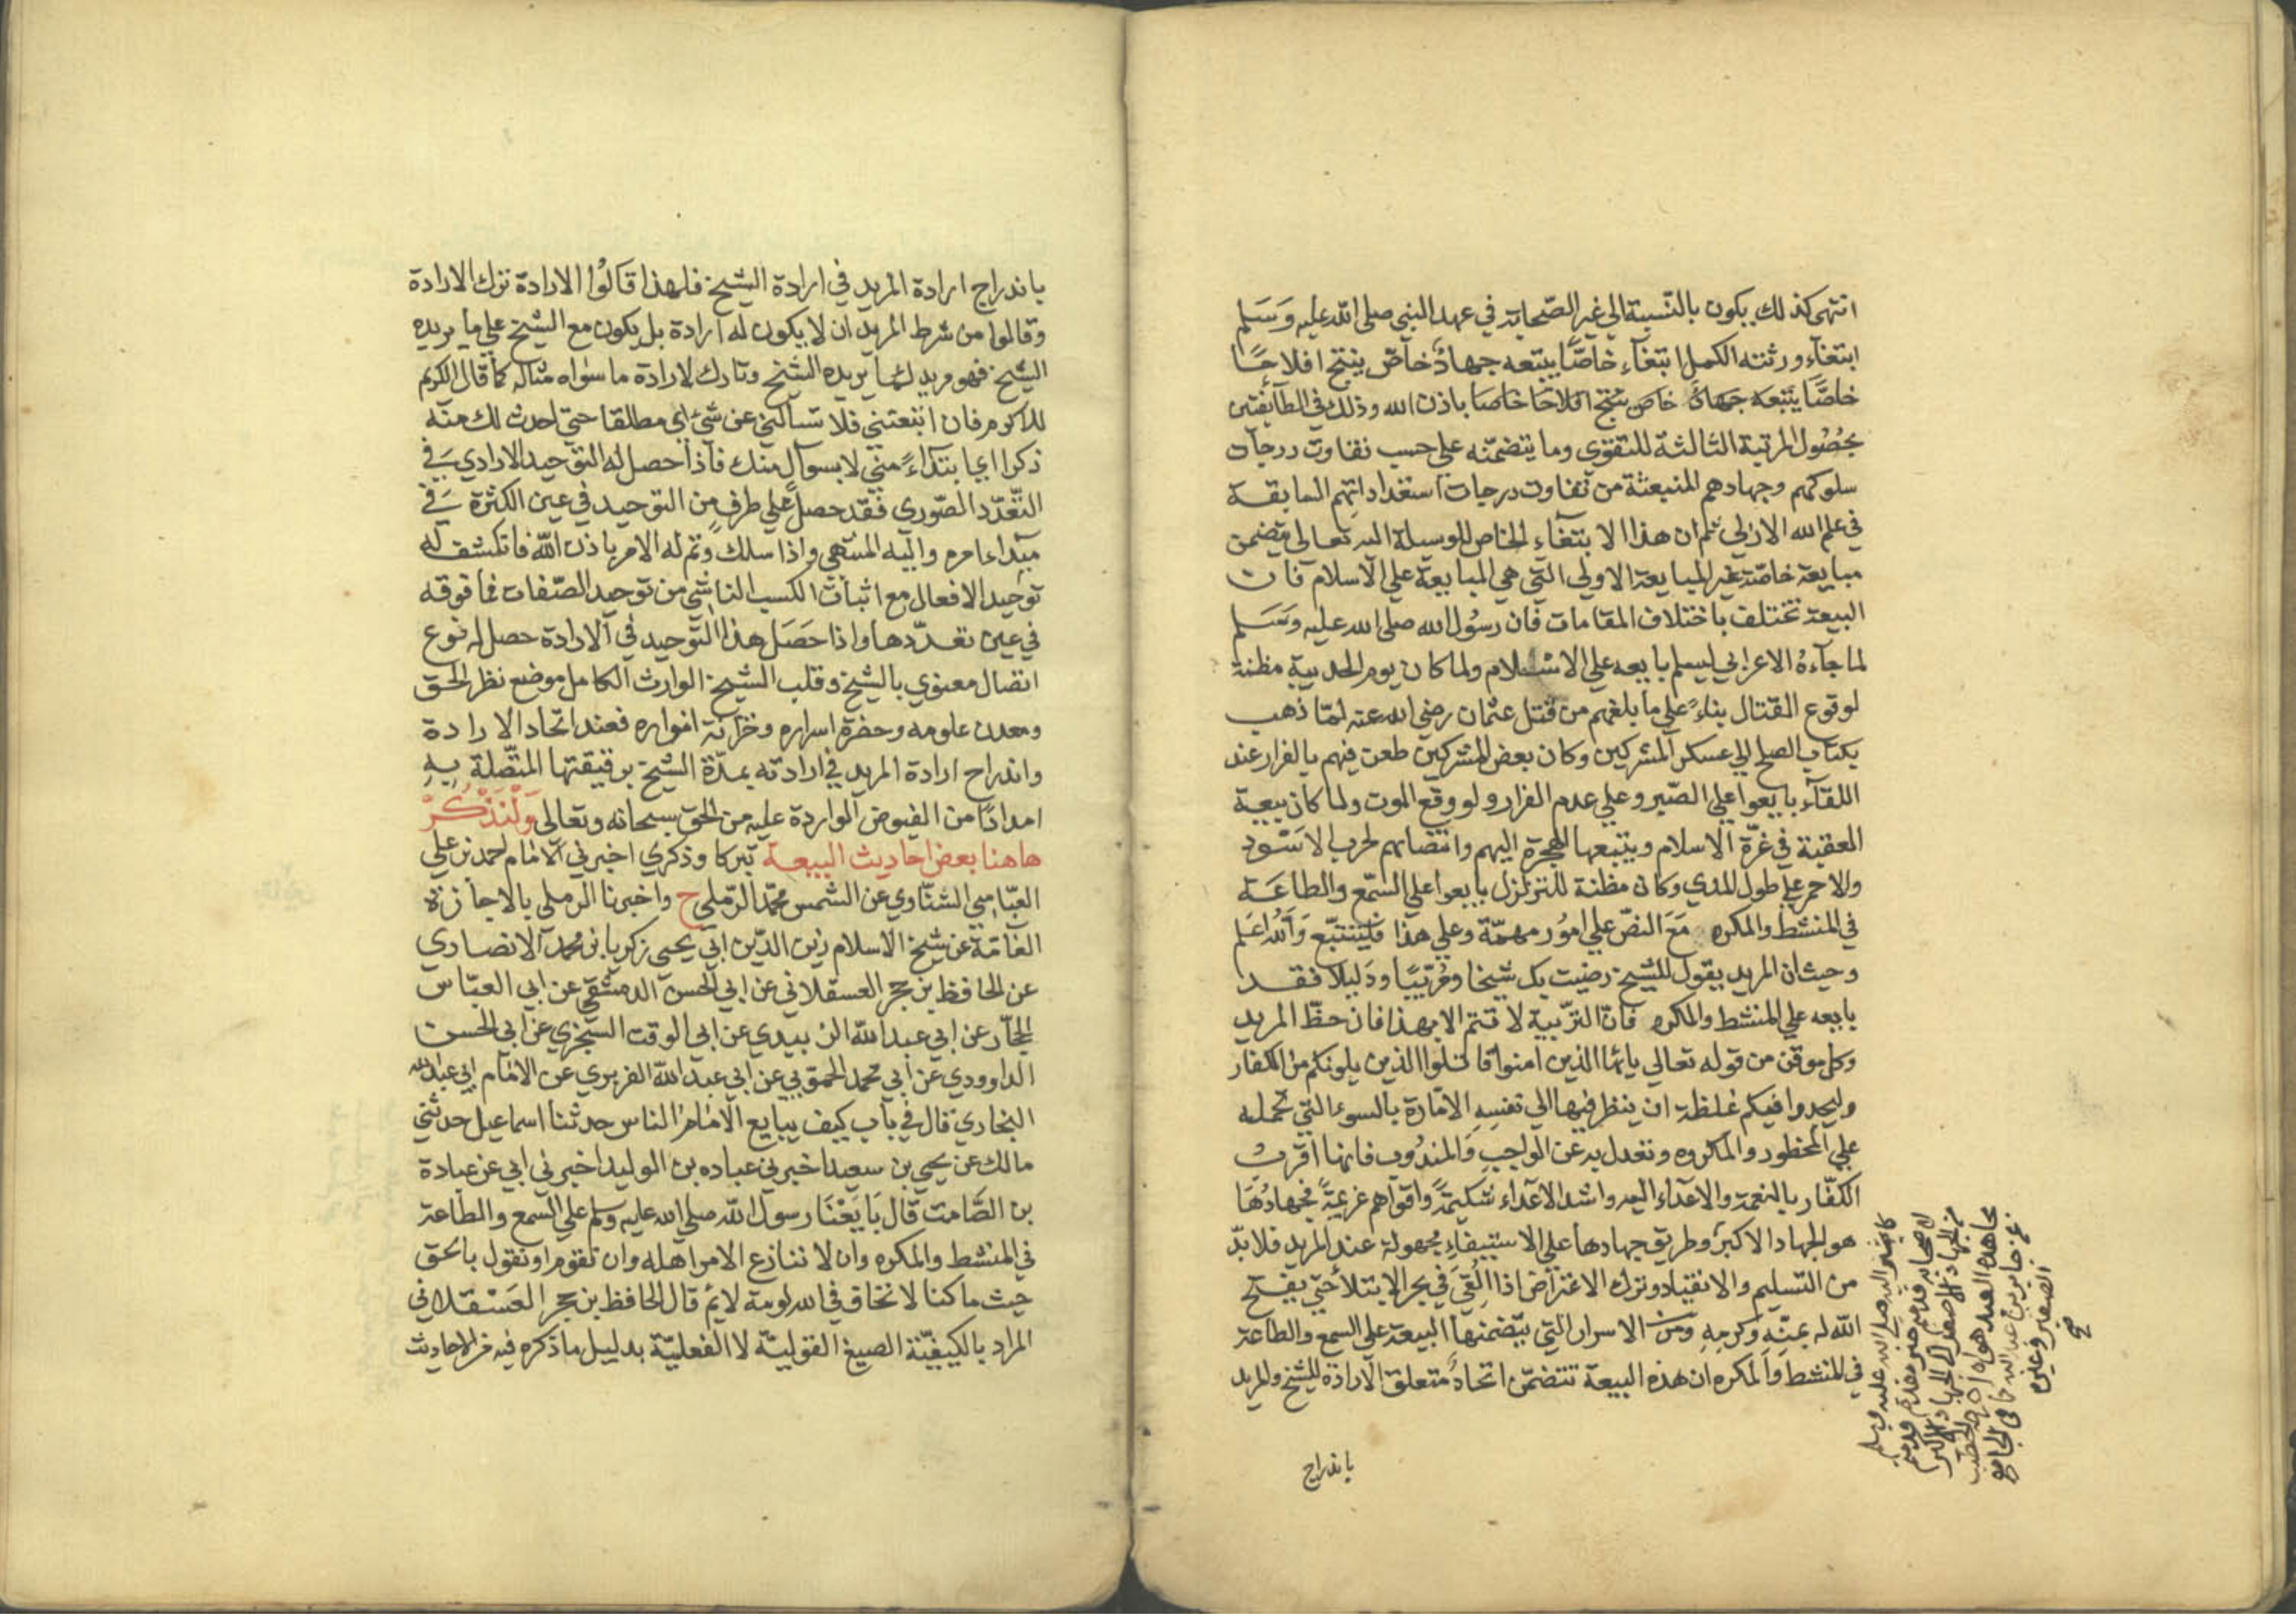 انتهى كذلك يكون بالنّسبة الي غير الصّحابة في عهد النبي صلى الله عليه وَسَلم
ابتغآء ورثته الكمل ابتغآء خاصًّا يتبعه جهادٌ خآصّ ينتج افلاحًا
خاصًّا يتبعه جهادٌ خاص ينتج افلاحًا خاصا باذن الله وذلك في الطآيفتين
بحُصُول المرتبة الثالثة للتقوى وما يتضمّنه على حسب تفاوت درجات
سلوكهم وجهادهم المنبعثة من تفاوت درجات استعداداتهم السابقة
في علم الله الازلي ثم ان هذا الابتغآء الخاص للوسيلة اليه تعالى يتضمن
مبايعة خاصّة غير المبايعة الاولي التي هي المبايعة علي الاسلام فان
البيعة تختلف باختلاف المقامات فان رسُول الله صلى الله عليه وسَلم
لما جآءهُ الاعرابي ليسلم بايعه علي الاسلام ولما كان يوم الحديبية مظنة
لوقوع القتال بناءً على ما بلغهم من قتل عثمان رضي الله عنه لمّا ذهب
بكتاب الصلح الي عسكر المشركين وكان بعض المشركين طعن فيهم بالفرار عند
اللقآء بايعوا علي الصّبر وعلي عدم الفرار ولو وقع الموت ولما كان بيعة
العقبة في غرّة الاسلام ويتبعها الهجرة اليهم وانتصابهم لحرب الاسْود
والاحمر علي طول المدي وكان مظنة للتزلزل بايعوا علي السّمع والطاعَة
في المنشط والمكره مَعَ النصّ علي امُور مهمّة وعلي هذا فليتتبّع وَالله اعلم
وحيث ان المريد يقول للشيخ رضيت بك شيخا ومُربّيًا ودَليلا فقد
بايعه علي المنشط والمكره فانّ التربية لا تتم الا بهذا فان حظّ المريد
وكل موقن من قوله تعالي يايها الذين امنوا قاتلوا الذين يلونكم من الكفار
وليجدوا فيكم غلظة ان ينظر فيها الي نفسِه الامّارة بالسوء التي تحمله
علي المحظور والمكروه وتعدل به عن الواجبِ وَالمندُوب فانها اقربُ
الكفّار بالنعمة والاعدَاء اليه واشد الاعدَاء شكيمَةً واقوَاهم عزيمَةً فجهادُهَا
هو الجهاد الاكبر وطريق جهادها علي الاستيفاءِ مجهولة عند المريد فلا بدّ
من التسليم والانقياد وترك الاعتراض اذا القيَ في بحر الابتلآ حتى يفتح
اللّه له بمنّهِ وكرمِهِ ومن الاسرار التي يتضمنها البيعة على السمع والطاعة
في المنشط وَالمكره ان هذه البيعة تتضمّن اتحادَ متعلق الارادة للشيخ والمريد
باندراج
كما يشير اليه صلى الله عليه وسلم
لاصحابه قدمتم خير مقدم قدمتم
من الجهاد الاصغر الي الجهاد الاكبر
مجاهدة العبد هواه رواه الخطيب
عن جابر بن عبد الله كما في الجامع
الصغير وغيره
صح
باندراج ارادة المريد في ارادة الشيخ فلهذا قَالُوا الارادة ترك الارادة
وقالوا من شرط المريد ان لا يكون له ارادة بل يكون مع الشيخ علي ما يريده
الشيخ فهو مريد لمَا يريده الشيخ وتارك لارادة ما سواه مثاله كما قال الكريم
للمكروم فان اتبعتني فلا تسألني عن شئ اى مطلقا حتى احدث لك منه
ذكرا اي ابتدَاءً منّي لا بسوآلٍ منك فاذا حصل له التوحيد الارادي في
التعّدّد الصّوري فقد حصل علي طرفٍ من التوحيد في عين الكثرة في
مبدَاء امره واليه المنتهى واذا سلك وتم له الامر باذن اللّه فانكشف له
توحيد الافعال مع اثبات الكسب الناشي من توحيد الصّفات فما فوقه
في عين تعدّدها واذا حَصَل هذا التّوحيد في الارادة حصل له نوع
اتصال معنوي بالشيخ وقلب الشيخ الوارث الكامل موضع نظر الحق
ومعدن علومه وحضرة اسراره وخزانة انواره فعند اتحاد الارادة
واندراج ارادة المريد في ارادته يمدّهُ الشّيخ برقيقتها المتّصلة بِهِ
امدادًا من الفيوض الواردة عليه من الحق سبحانه وتعالى وَلْنَذْكُرْ
هاهنا بعض احاديث البيعة تبركا وذكري اخبرني الامَام احمد بن علي
العبّاسي الشنّاوي عن الشمس محمّد الرّملي ح واخبرنا الرملي بالاجازة
العآمّة عن شيخ الاسلام زين الدّين ابي يحيى زكريا بن محمد الانصاري
عن الحافظ بن حجر العسقلاني عن ابي الحسن الدمشقي عن ابي العبّاس
الحجّار عن ابي عبد اللّه الزبيدي عن ابي الوقت السجزي عن ابي الحسن
الداوودي عن ابي محمد الحمّوبي عن ابي عبد اللّه الفربري عن الامَام ابي عبد الله
البخاري قال في باب كيف يبايع الامَام الناس حدثنا اسماعيل حدثني
مالك عن يحيي بن سعيد اخبرني عباده بن الوليد اخبرني ابي عن عبادة
بن الصَّامت قال بَايَعْنَا رسول اللّه صلى الله عليه وسلم علي السّمع والطاعة
في المنشط والمكره وان لا ننازع الامر اهله وان نقوم او نقول بالحق
حيث ما كنا لا نخاف في الله لومة لائم قال الحافظ بن حجر العَسْقلاني
المراد بالكيفيّة الصيغ القوليّة لا الفعليّة بدليل ما ذكره فيه من الاحاديث